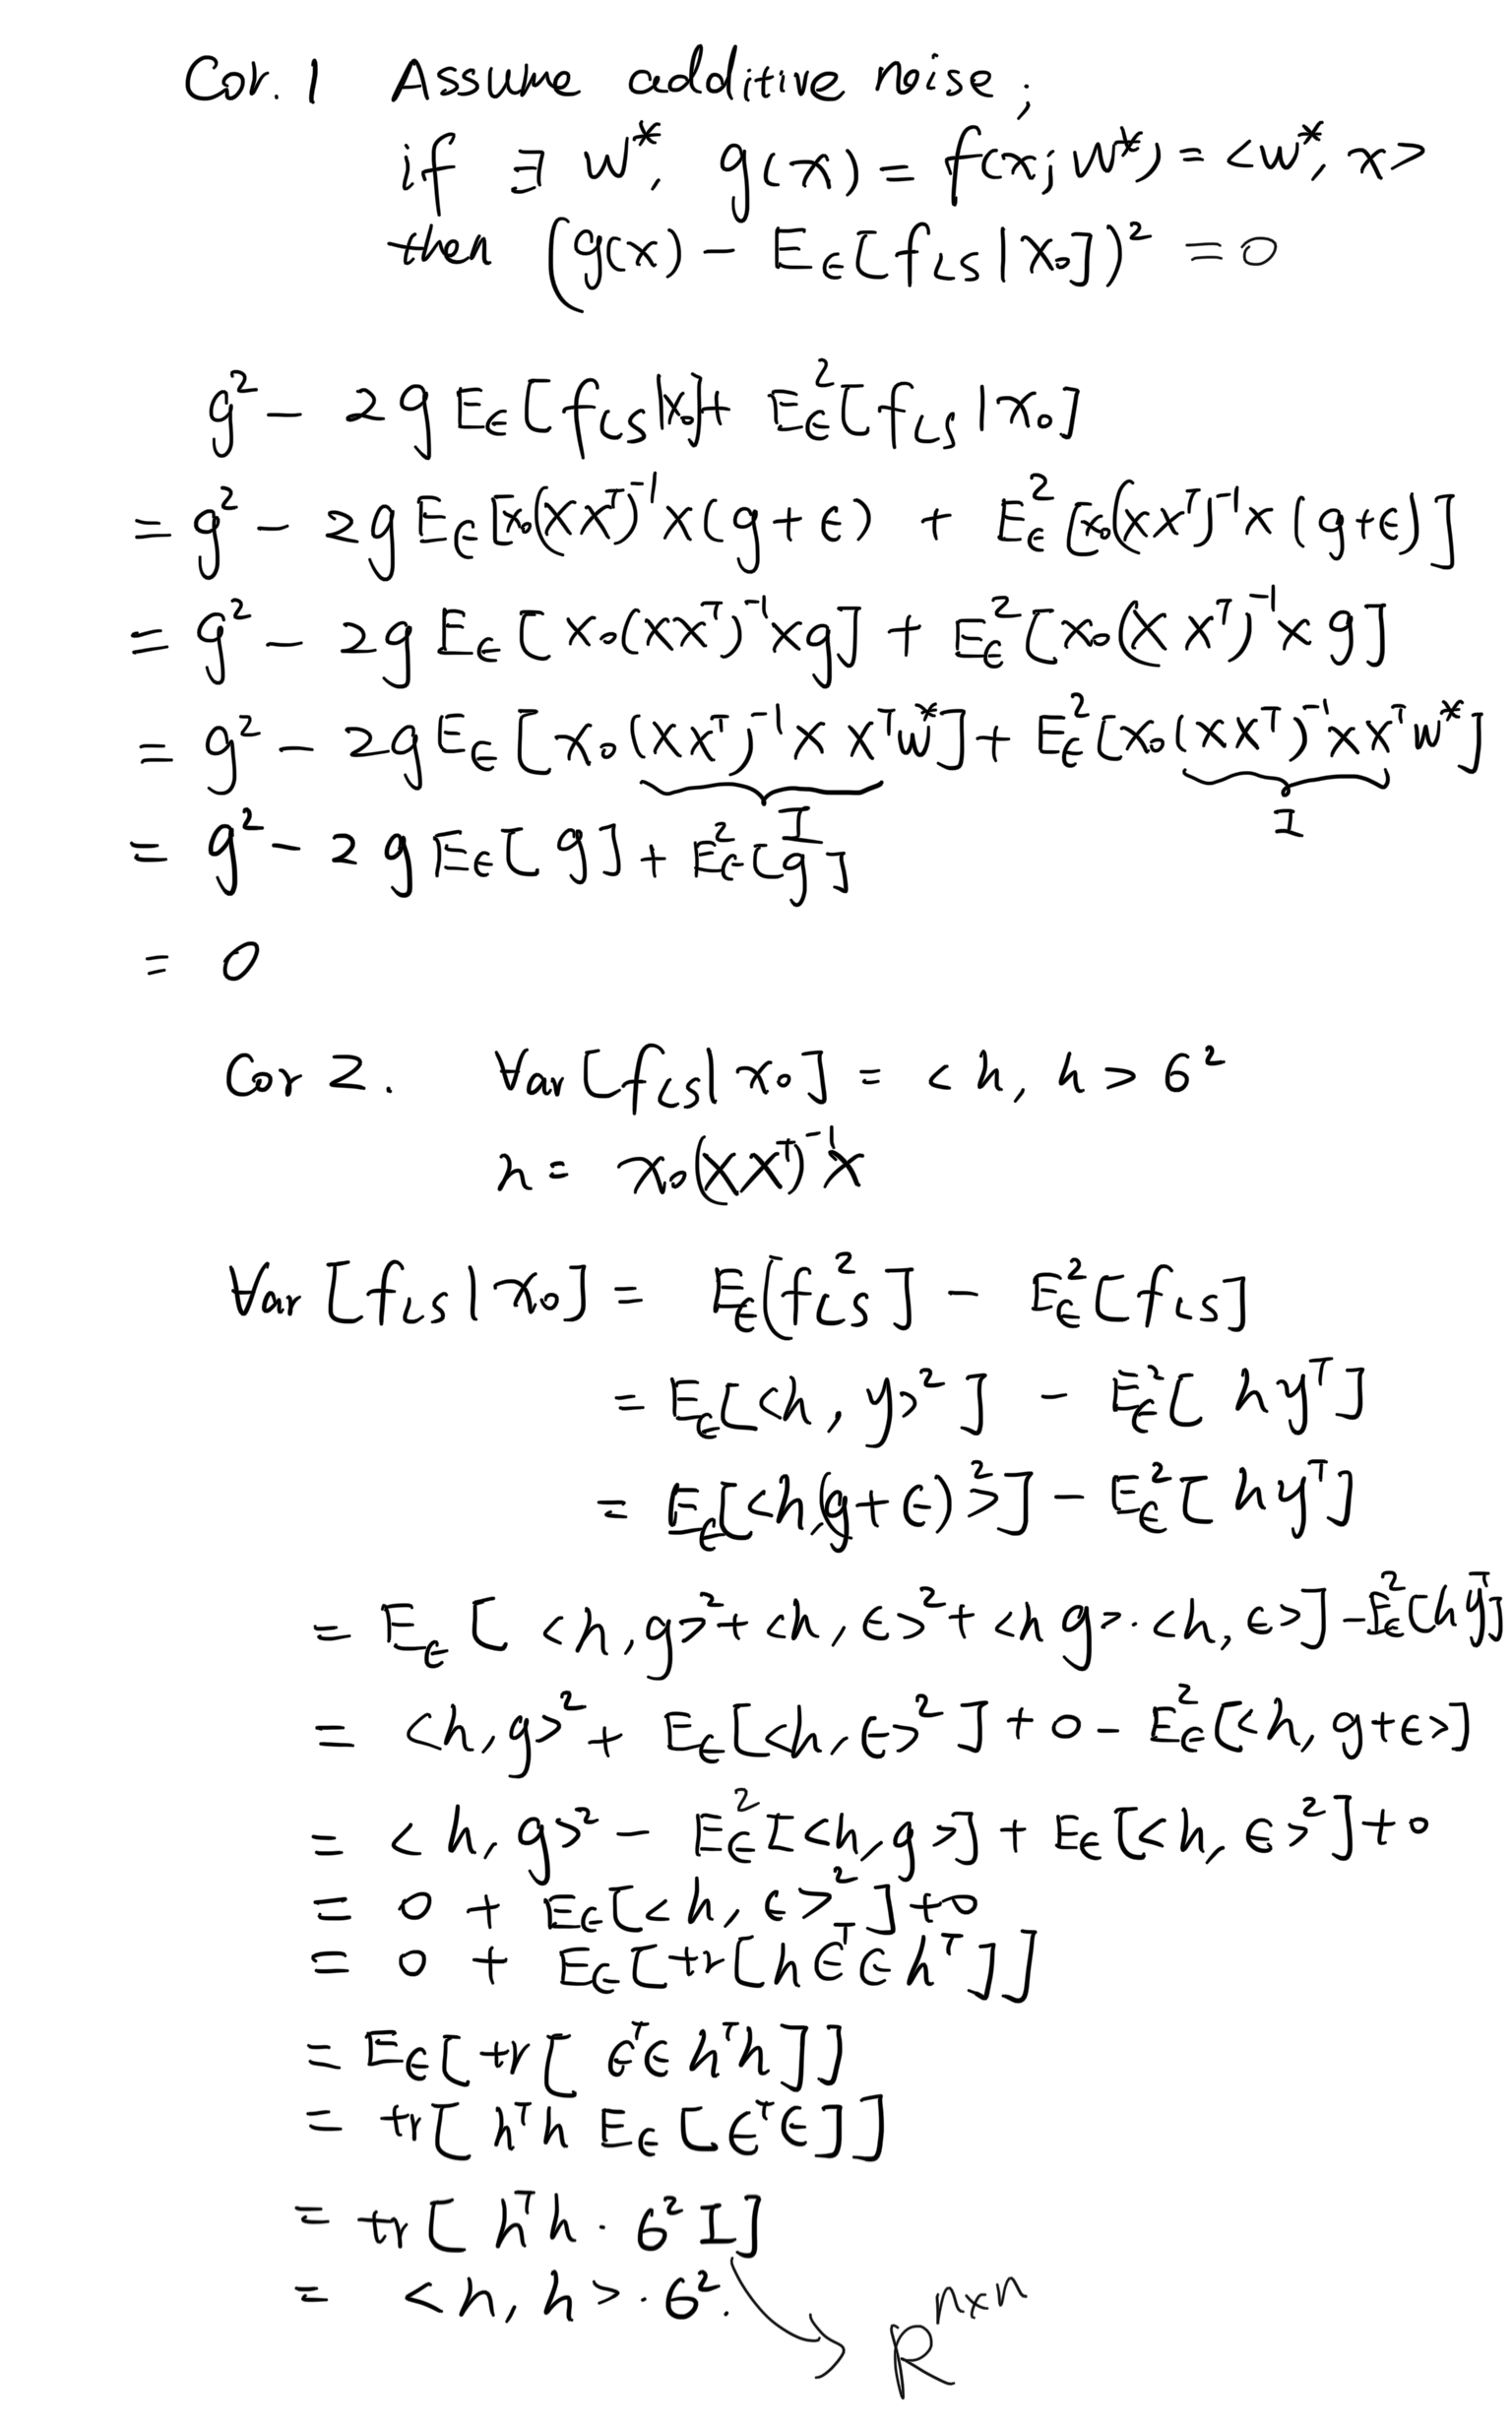 Cor. 1 Assume additive noise,
if ∃ w*, g(x) = f(x; w*) = <w*, x>
then (g(x) - E_ϵ[f_LS|x₀])² = 0
g² - 2g E_ϵ[f_LS|x₀] + E_ϵ²[f_LS|x₀]
= g² - 2g E_ϵ[x₀(XXᵀ)⁻¹X(g+ϵ) + E_ϵ²[x₀(XXᵀ)⁻¹X(g+ϵ)]
= g² - 2g E_ϵ[x₀(XXᵀ)⁻¹Xg] + E_ϵ²[x₀(XXᵀ)⁻¹Xg]
= g² - 2g E_ϵ[x₀(XXᵀ)⁻¹XXᵀw*] + E_ϵ²[x₀(XXᵀ)⁻¹XXᵀw*]
I I
= g² - 2g E_ϵ[g] + E_ϵ²[g]
= 0
Cor 2. Var[f_LS|x₀] = <h, h>σ²
h = x₀(XXᵀ)⁻¹X
Var[f_LS|x₀] = E_ϵ[f_LS²] - E_ϵ²[f_LS]
= E_ϵ[<h, y>²] - E_ϵ²[hyᵀ]
= E_ϵ[<h,(g+ϵ)>²] - E_ϵ²[hyᵀ]
= E_ϵ[<h,g>² + <h,ϵ>² + <h g>·<h,ϵ>] - E_ϵ²[hyᵀ]
= <h,g>² + E_ϵ[<h,ϵ>²] + 0 - E_ϵ²[<h, g+ϵ>]
= <h,g>² - E_ϵ²[<h,g>] + E_ϵ[<h,ϵ>²] + 0
= 0 + E_ϵ[<h,ϵ>²] + 0
= 0 + E_ϵ[tr[hϵᵀϵhᵀ]]
= E_ϵ[tr[ϵᵀϵhᵀh]]
= tr[hᵀh E_ϵ[ϵᵀϵ]]
= tr[hᵀh · σ²I]
= <h, h>·σ².
R^{n×n}